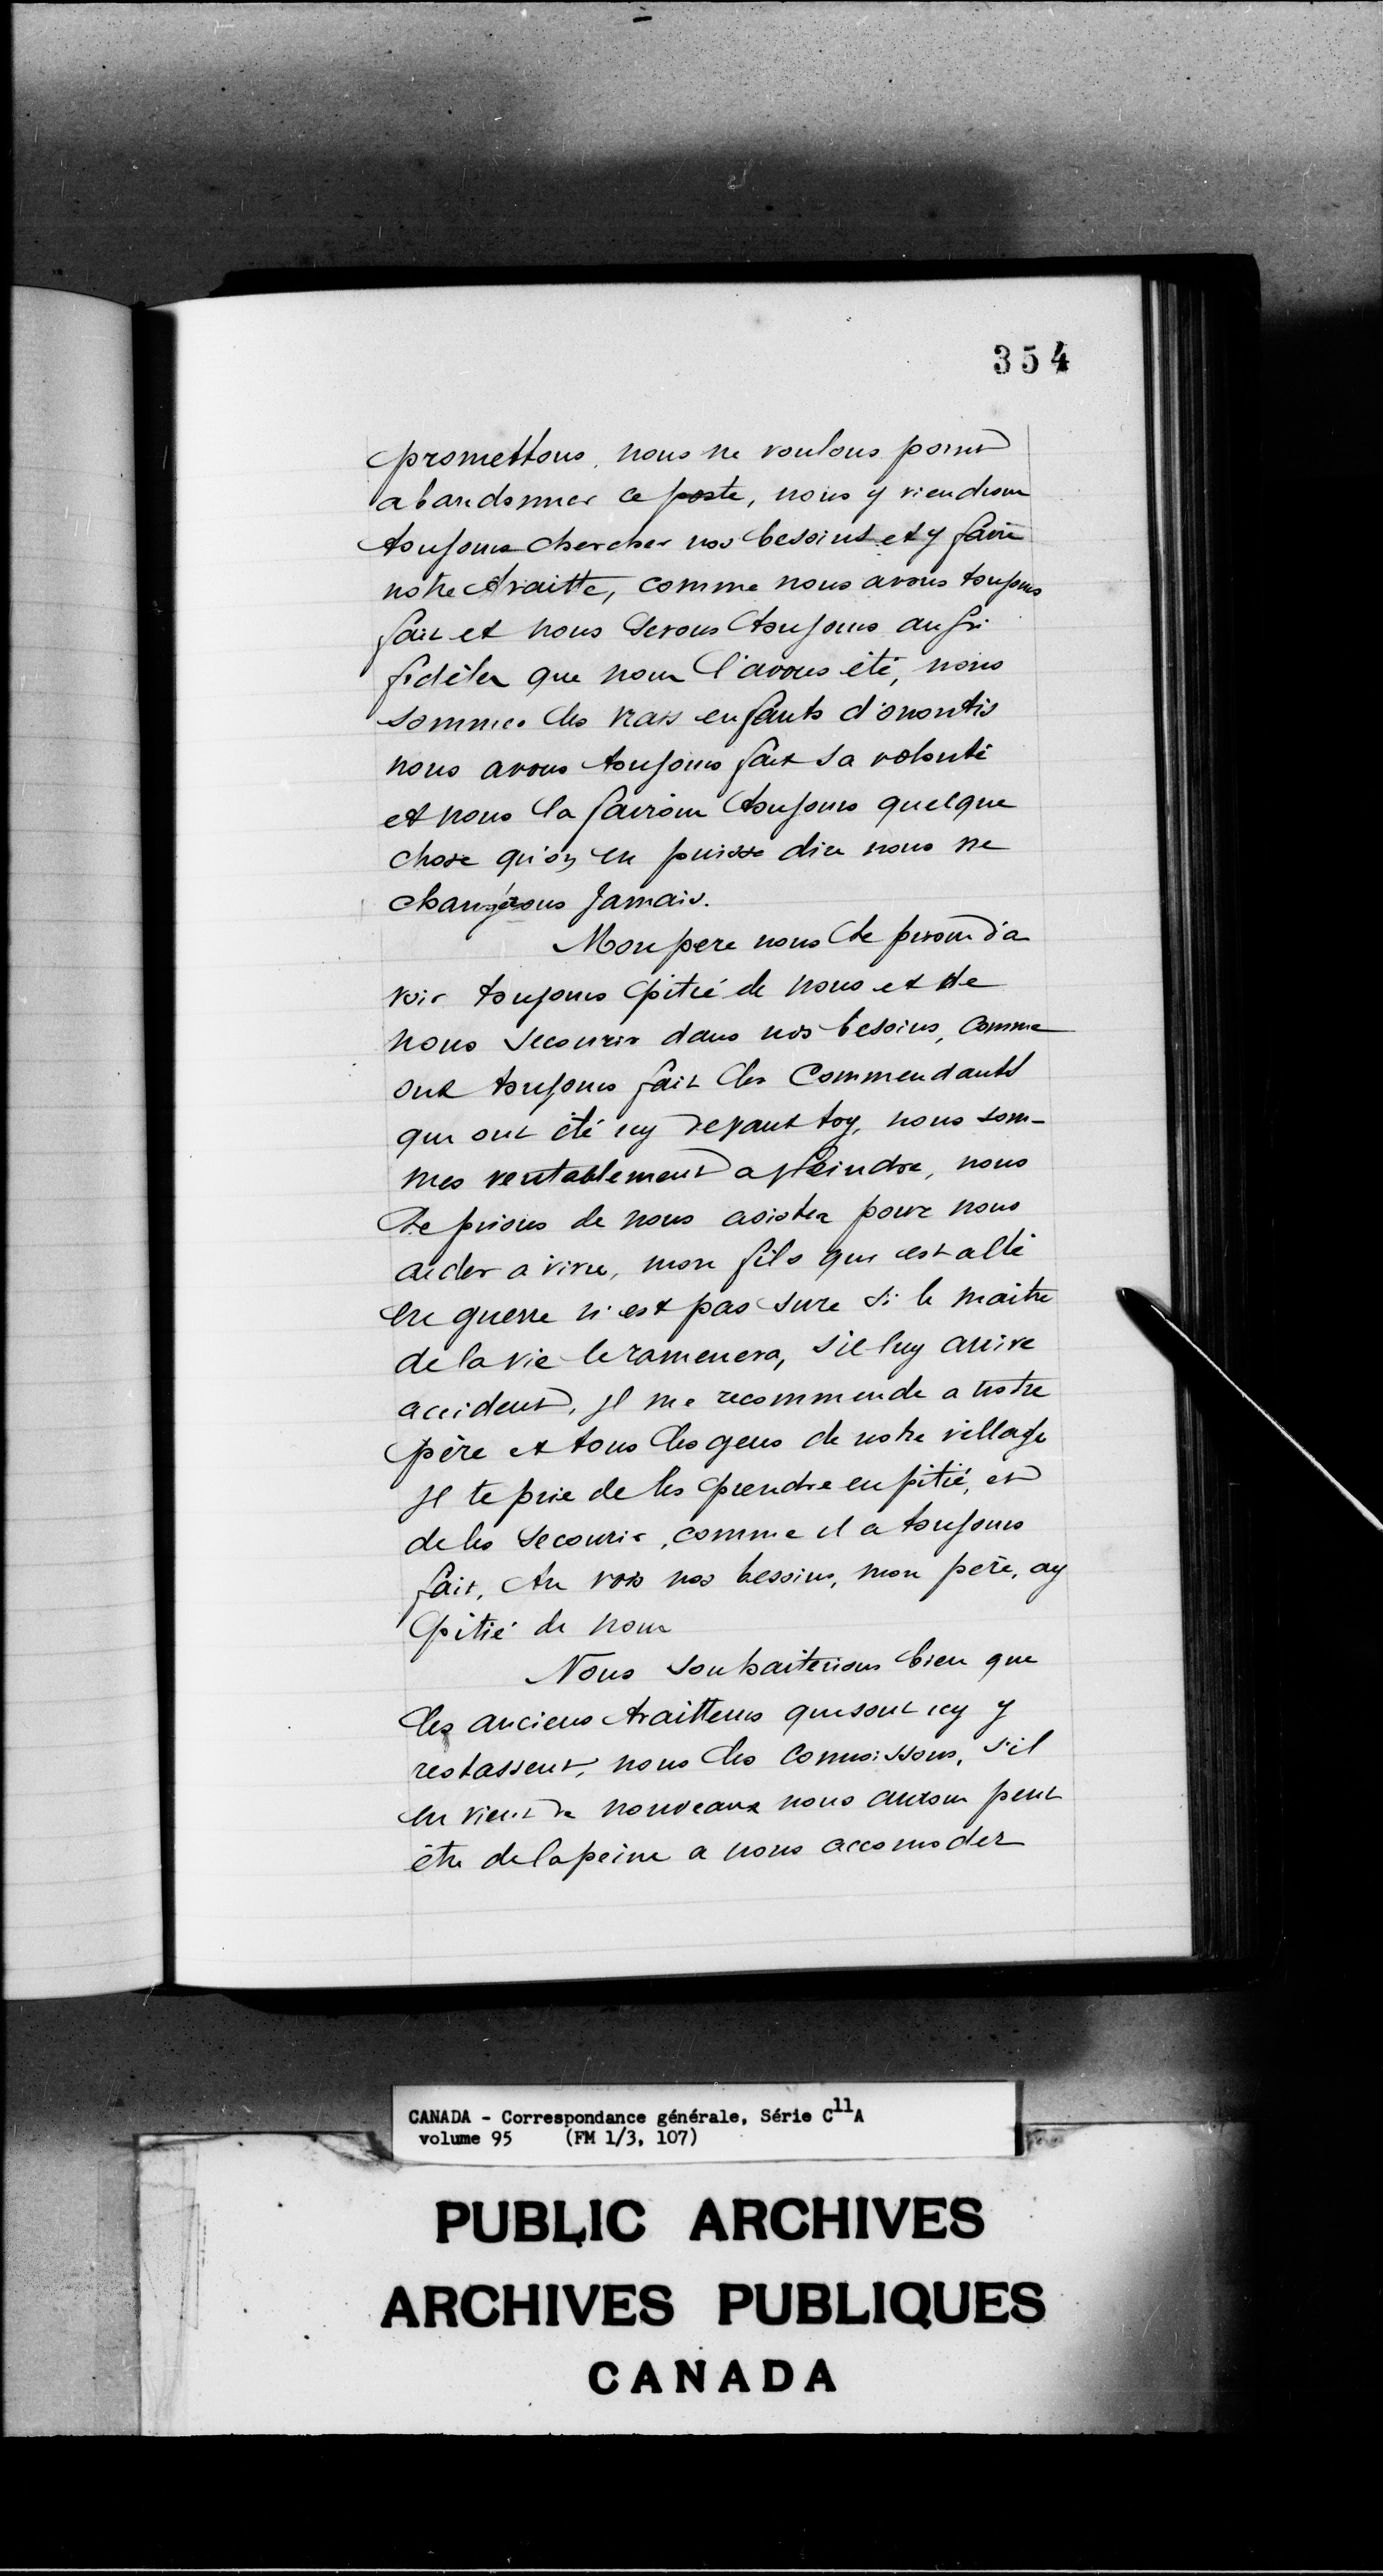 354
promettons, nous ne voulons point
abandonner ce poste, nous y viendrons
toujours chercher nos besoins et y faire
notre traitte, comme nous avons toujours
fait et nous serons toujours aussi
fidéles que nous l'avons été, nous
sommes les vrais enfants d'onontio
nous avons toujours fait sa volonté
et nous la fairons toujours quelque
chose qu'on en puisse dire nous ne
changérons Jamais.
Mon pere nous te prions d'a
voir toujours pitié de nous et de
nous secourir dans nos besoins, comme
ont toujours fait les Commendants
qui ont été icy devant toy, nous som-
mes veritablement a plaindre, nous
te prions de nous asister pour nous
aider a vivre, mon fils qui est allé
en guerre n'est pas sure si le maitre
de la vie le ramenera, s'il luy arrive
accident, Il me recommende a notre
père et tous les gens de notre village
Il te prie de les prendre en pitié, et
de les secourir, comme il a toujours
fait, tu vois nos bessins, mon père, ay
pitié de nous
Nous souhaiterions bien que
les anciens traitteurs qui sont icy y
restassent, nous les connoissons, s'il
en vient de nouveaux nous aurons peut
être de la peine a nous accomoder
CANADA - Correspondance générale, Série C11A
volume 95 (FM 1/3, 107)
PUBLIC ARCHIVES
ARCHIVES PUBLIQUES
CANADA